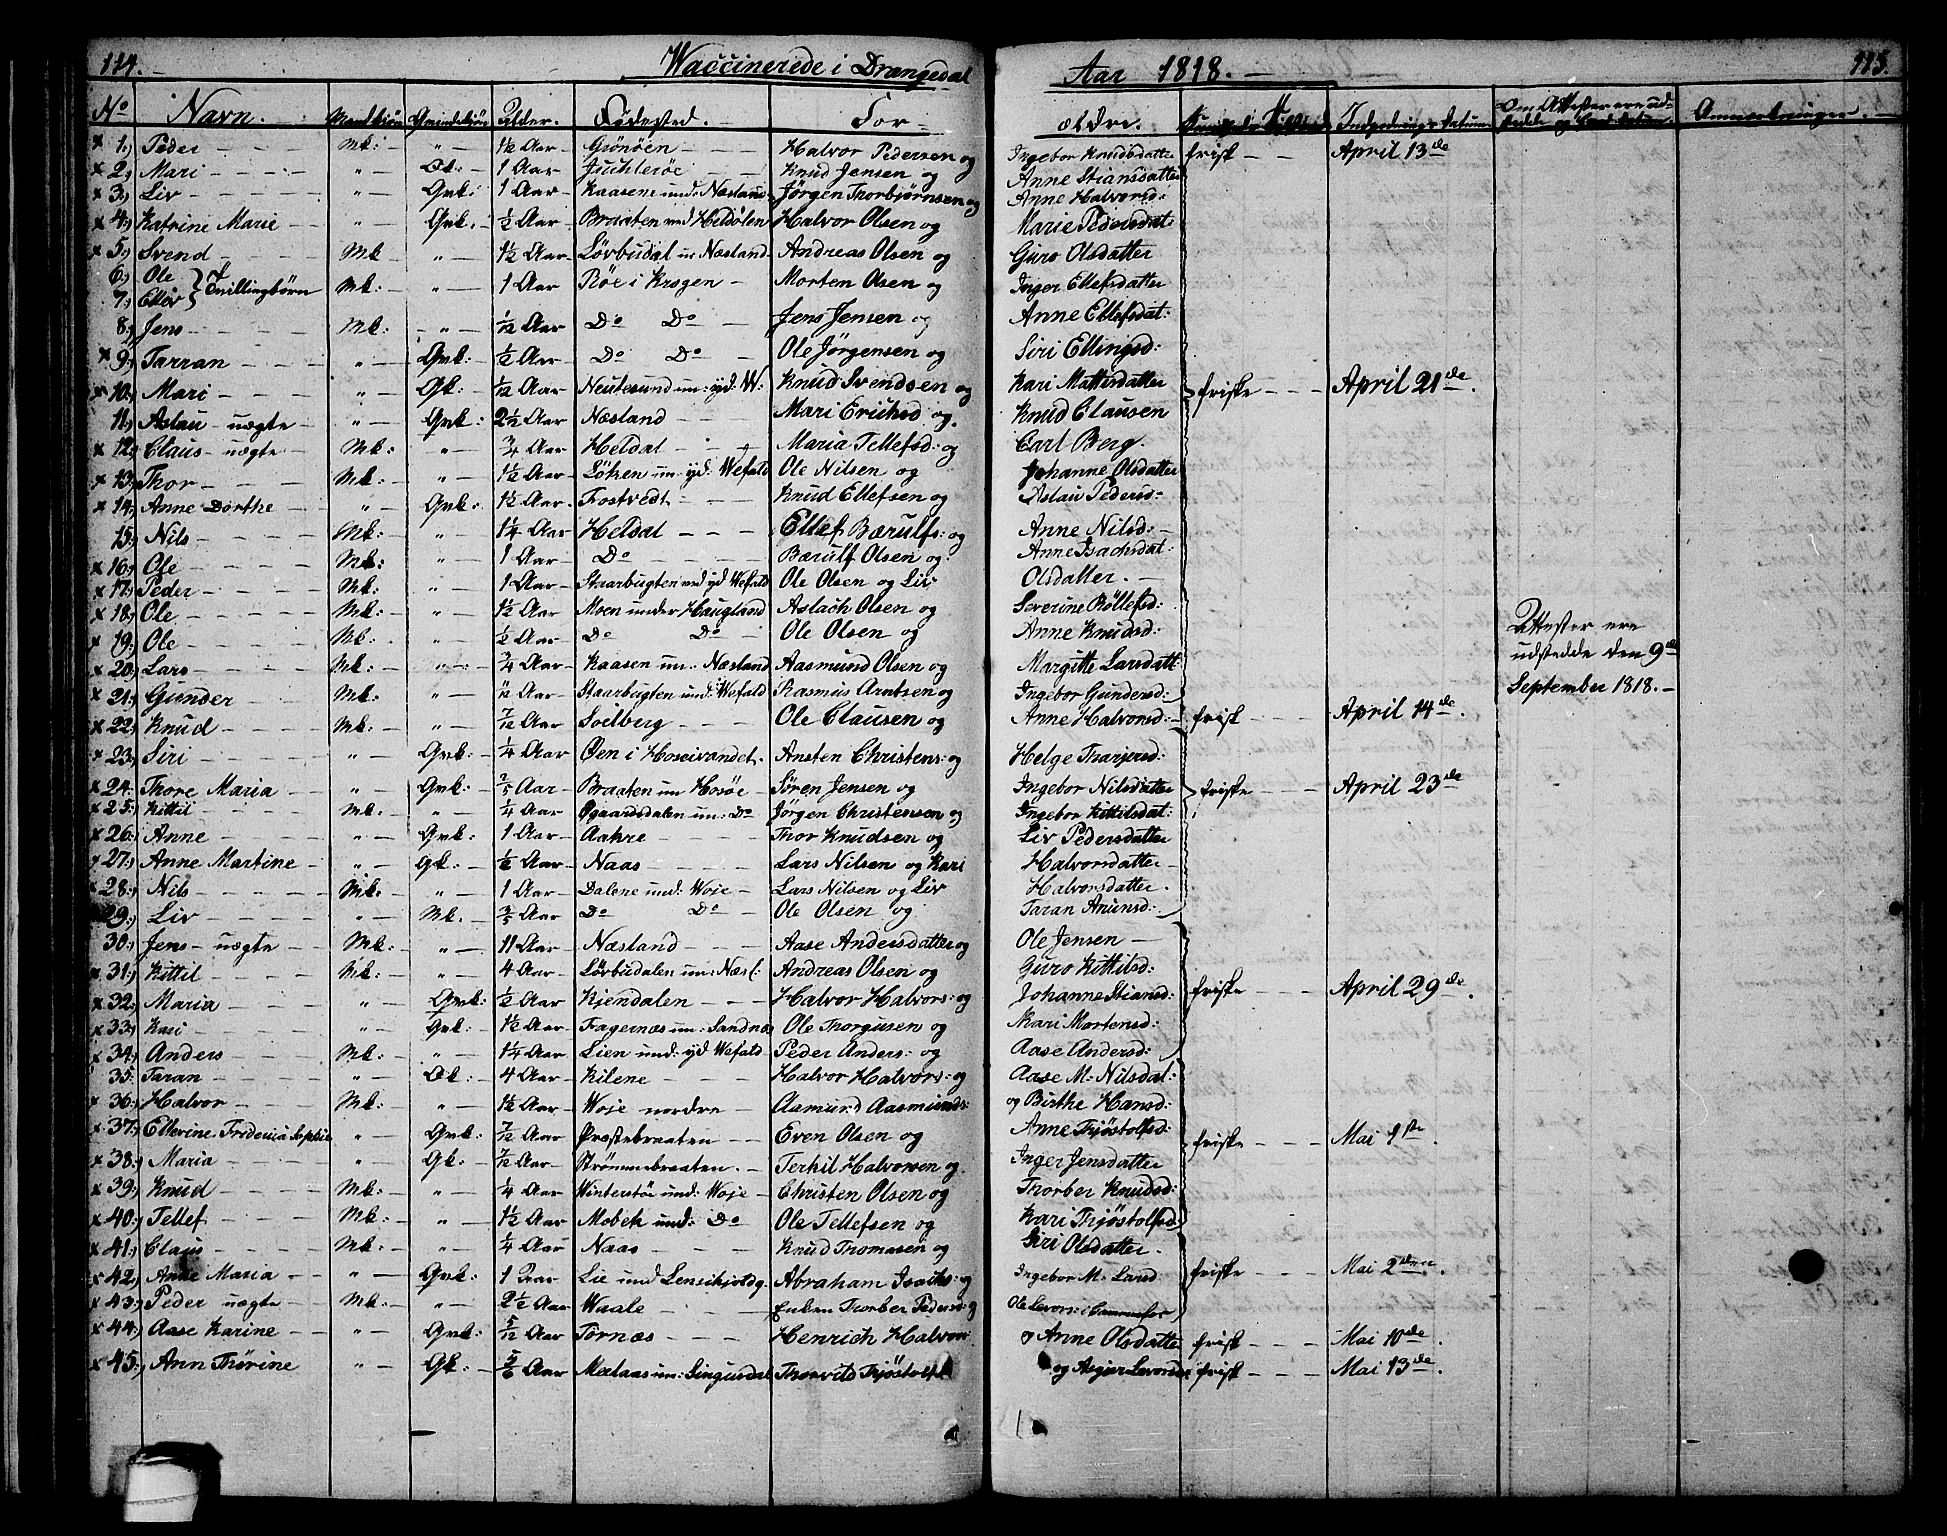 114.
Waccinerede i Drangedal Aar 1818.
115.
No Navn. Mandkjön Qvindekjön Alder. Födested. Forældre. Indpodnings datum Om Attester ere ud- Anmerkninger.
1, Peder Mk: " 1½ Aar Grönöen Halvor Pedersen og Ingebor Knudsdatter frisk April 13de
2, Mari " Qk: 1 Aar Juchleröe Knud Jensen og Anne Stiansdatter
3, Liv " Qvk: 1 Aar Kaasene und: Næsland Jörgen Thorbjörnsen og Anne Halvorsd:
4, Katrine Marie " Qvk. ½ Aar Braaten und Heldölen Halvor Olsen og Marie Pedersdat:
5, Svend Mk " 1½ Aar Lörbudal un: Næsland Andreas Olsen og Guro Olsdatter
6, Ole
7, Ellev } Tvillingbörn Mk: " 1 Aar Röe i Krogen Morten Olsen og Inger Ellefsdatter
8, Jens Mk: " 1/12 Aar Do Do Jens Jensen og Anne Ellefsdat:
9, Tarran " Qvk: ½ Aar Do Do Ole Jörgensen og Siri Ellingsd:
10, Mari " Qk: Aar Neutesund un: yd: W: Knud Svendsen og Kari Mattisdatter friske April 21de
11, Aslau uægte " Qvk: 2½ Aar Næsland Mari Erichsd og Knud Clausen
12, Claus uægte Mk: " ¾ Aar Heldal Maria Tellefsd: og Carl Berg.
13, Thor Mk: " 1½ Aar Löken un: yd: Wefald Ole Nilsen og Johanne Olsdatter
14, Anne Dorthe " Qvk: 1½ Aar Fostvedt Knud Ellefsen og Aslau Pedersd
15, Nils Mk: " 1¼ Aar Heldal Ellef Bærulfs: og Anne Nilsd:
16, Ole Mk: " 1 Aar Do Bærulf Olsen og Anne Isachsdat:
17, Peder Mk: " 1 Aar Staarbugten und yd Wefald Ole Olsen og Liv Olsdatter.
18, Ole Mk: " 1½ Aar Moen under Haugland Aslach Olsen og Severine Röllefsd:
19, Ole Mk: " ½ Aar Do Do Ole Olsen og Anne Knudsd: Attester ere
20, Lars Mk: " ¾ Aar Kaasen un: Næsland Aasmund Olsen og Margitte Larsdatt: udstedde den 9de
21, Gunder Mk: " Aar Staarbugten und: Wefald Rasmus Arntsen og Ingebor Gundersd: September 1818.
22, Knud Mk: " 7/12 Aar Soelberg Ole Clausen og Anne Halvorsd: frisk April 14de.
23, Siri " Qvk: ¼ Aar Öen i Hoseivandet. Ansten Christens: og Helge Tharjersd:
24. Thore Maria " Qvk: Aar Braaten un Hosöe Sören Jensen og Ingebor Nilsdatter friske April 23de
25. Kittil Mk: " Aar Ögaardsdalen un: Do Jörgen Christensen og Ingebor Kittilsdat:
26. Anne " Qvk: 1 Aar Aakre Thor Knudsen og Liv Pedersdatter
27. Anne Martine " Qk: Aar Naas Lars Nilsen og Kari Halvorsdatter
28. Nils Mk: " 1 Aar Dalene und: Woje Lars Nilsen og Liv Halvorsdatter.
29. Liv " Mk: Aar Do Do Ole Olsen og Taran Anunsd:
30, Jens uægte Mk: " 11 Aar Næsland Aase Andersdatter og Ole Jensen
31, Kittil Mk: " 4 Aar Lörbudalen un: Næsl: Andreas Olsen og Guro Kittilsd:
32, Maria " Qvk: ½ Aar Kjendalen Halvor Halvors: og Johanne Stiansd: friske April 29de.
33, Kari " Qvk: 1½ Aar Fagernæs un: Sandnæs Ole Thorgusen og Kari Mortensd:
34, Anders Mk: " 1¼ Aar Lien und: yd Wefald Peder Anders: og Aase Andersd:
35. Taran " Qk: 4 Aar Kilene Halvor Halvors: og Aase M: Nilsdat:
36, Halvor Mk: " 1½ Aar Woje nordre Aamund Aasmunds: og Birthe Hansd:
37, Ellevine Frederica Sophie " Qvk: 7/12 Aar Præstebraaten Even Olsen og Anne Tjöstolfsd: friske Mai 1ste.
38, Maria " Qk: 7/12 Aar Strömmebraaten. Terkil Halvorsen og Inger Jensdatter
39, Knud Mk: " ¼ Aar Winterstöe und: Woje Christen Olsen og Thorber Knudsd:
40, Tellef Mk: " 1½ Aar Mobek und: Do Ole Tellefsen og Kari Tjöstolfsd
41, Claus Mk: " ¼ Aar Naas Knud Thomasen og Siri Olsdatter.
42, Anne Maria " Qvk: 1 Aar Lie und Lensikjoldg. Abraham Isachs: og Ingebor M: Larsd friske Mai 2den.
43, Peder uægte Mk: " 2½ Aar Waale Enken Thorber Peders: og Ole Levors:
44, Aase Karine " Qvk: 5/12 Aar Törnæs Henrich Halvors og Anne Olsdatter frisk Mai 10de.
45, Ann Thörine " Qk: Aar Mælaas un: Lingusdal Thorvild Tjöstolfs og Asgier Levorsd frisk Mai 13de.